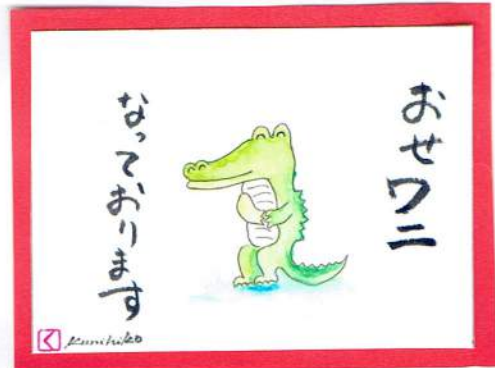 おせワニ
なっております
く Kunihiko